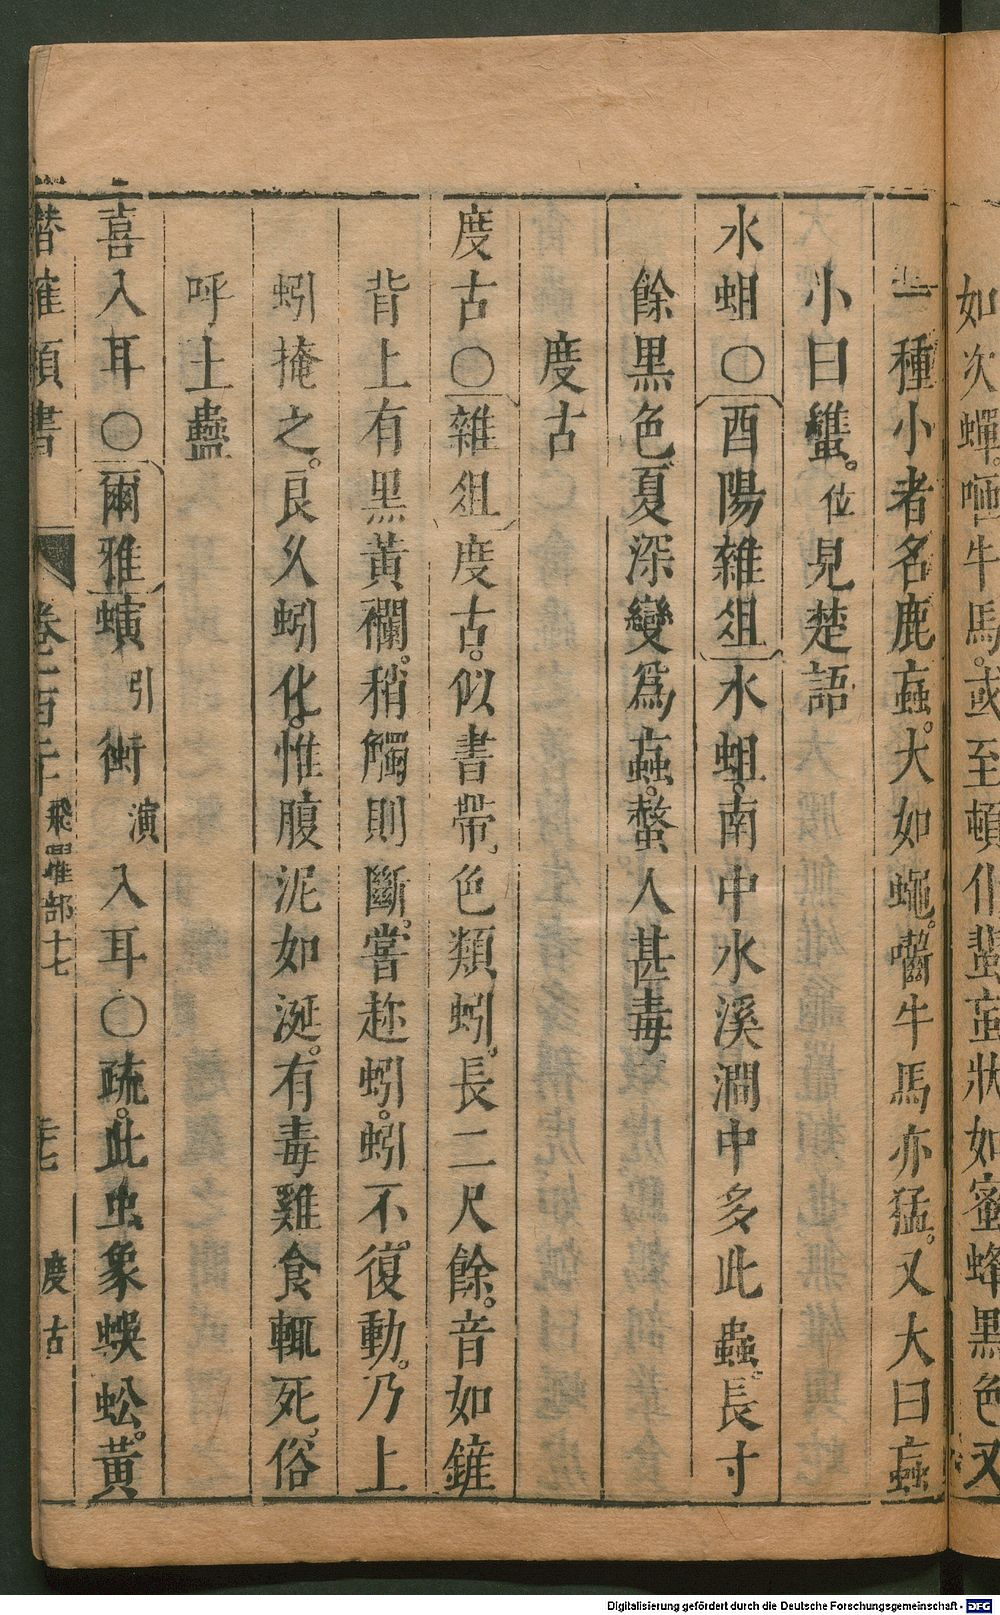 如次蟬。咂牛馬。或至頓仆蜚䖟狀如蜜蜂黑色又
一種小者名鹿䖟。大如蠅。嚙牛馬亦猛。又大曰䖟
小曰蟁。位見楚語
水蛆〇酉陽雜俎水蛆。南中水溪澗中多此蟲。長寸
餘黑色。夏深變爲䖟。螫人甚毒
度古
度古〇雜俎度古。似書帶。色類蚓。長二尺餘。首如鏟
背上有黑黃襴。稍觸則斷。嘗趂蚓。蚓不復動。乃上
蚓掩之。良久蚓化。惟腹泥如涎。有毒雞食輒死。俗
呼土蠱
喜入耳〇爾雅螾引衘演入耳〇疏。此虫象蜈蚣。黃
潛確類書
卷一百二十
飛躍部十七
度古
Digitalisierung gefördert durch die Deutsche Forschungsgemeinschaft - DFG